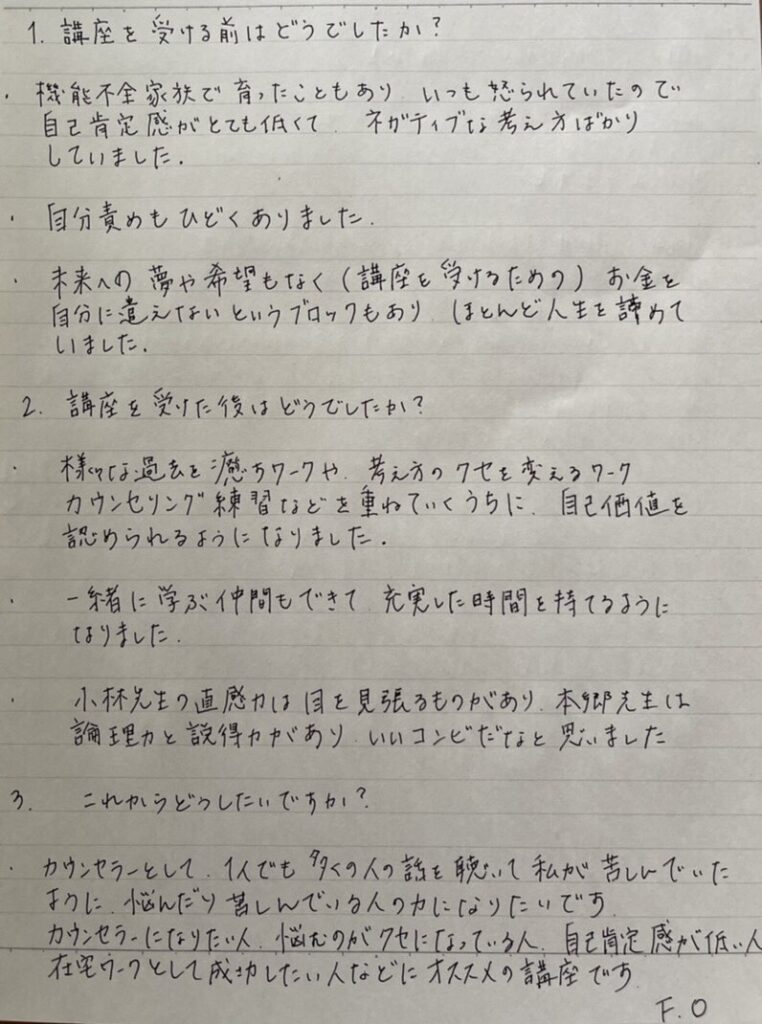 1. 講座を受ける前はどうでしたか?
・ 機能不全家族で育ったこともあり いつも怒られていたので
自己肯定感がとても低くて、ネガティブな考え方ばかり
していました.
・ 自分責めもひどくありました.
・ 未来への夢や希望もなく(講座を受けるための)お金を
自分に遣えないというブロックもあり ほとんど人生を諦めて
いました.
2. 講座を受けた後はどうでしたか?
・ 様々な過去を癒すワークや、考え方のクセを変えるワーク
カウンセリング練習などを重ねていくうちに、自己価値を
認められるようになりました.
・ 一緒に学ぶ仲間もできて 充実した時間を持てるように
なりました.
・ 小林先生の直感力は目を見張るものがあり、本郷先生は
論理力と説得力があり、いいコンビだなと思いました
3. これからどうしたいですか?
・ カウンセラーとして、1人でも多くの人の話を聴いて私が苦しんでいた
ように、悩んだり苦しんでいる人の力になりたいです
カウンセラーになりたい人、悩むのがクセになっている人、自己肯定感が低い人
在宅ワークとして成功したい人などにオススメの講座です
F.O